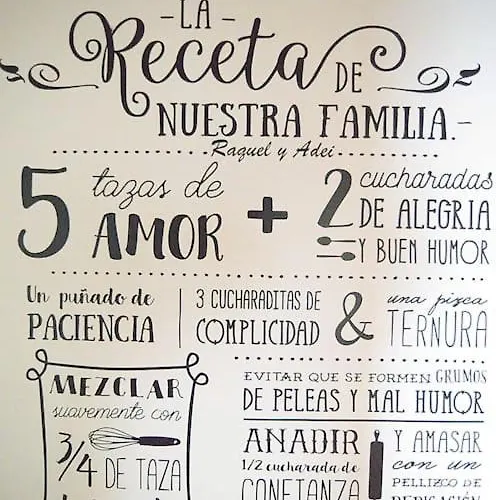 -LA-
Receta DE
NUESTRA FAMILIA.-
Raquel y Adei
5 tazas de AMOR
+
2 cucharadas
DE ALEGRIA
Y BUEN HUMOR
Un puñado de
PACIENCIA
3 CUCHARADITAS DE
COMPLICIDAD
&
una pizca
TERNURA
MEZCLAR
suavemente con
3/4 DE TAZA
EVITAR QUE SE FORMEN GRUMOS
DE PELEAS Y MAL HUMOR
AÑADIR
1/2 cucharada de
CONFIANZA
Y AMASAR
con un
PELLIZCO DE
DEDICACIÓN